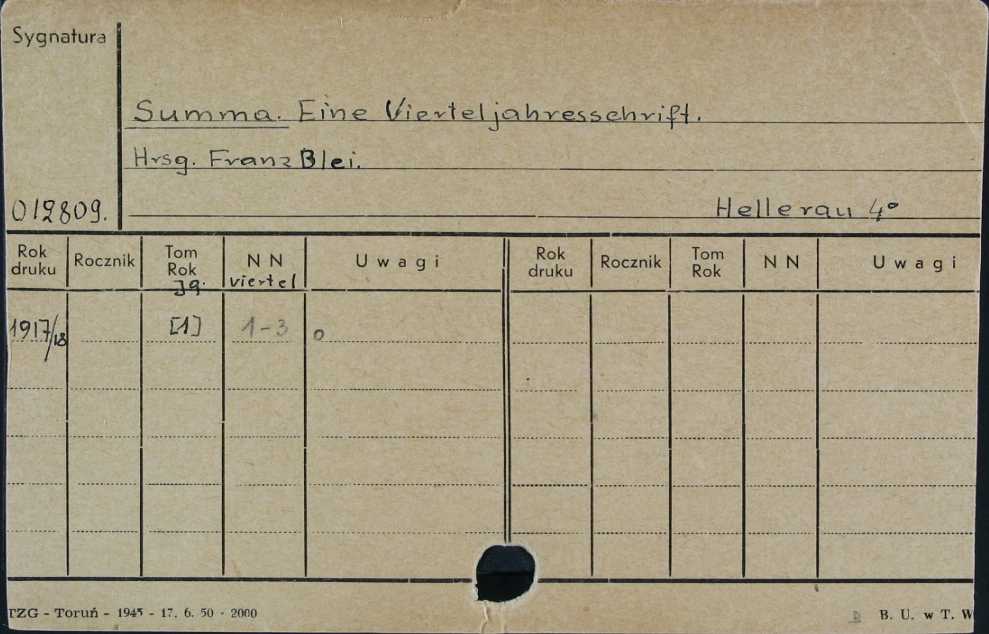 Sygnatura
Summa. Eine Vierteljahresschrift.
Hrsg. Franz Blei.
012809.
Hellerau 4°
Rok druku Rocznik Tom Rok N N Uwagi Rok druku Rocznik Tom Rok N N Uwagi
Jg. viertel
1917/18 [1] 1-3 o
TZG - Toruń - 1945 - 17. 6. 50 - 2000
B. U. w T. W